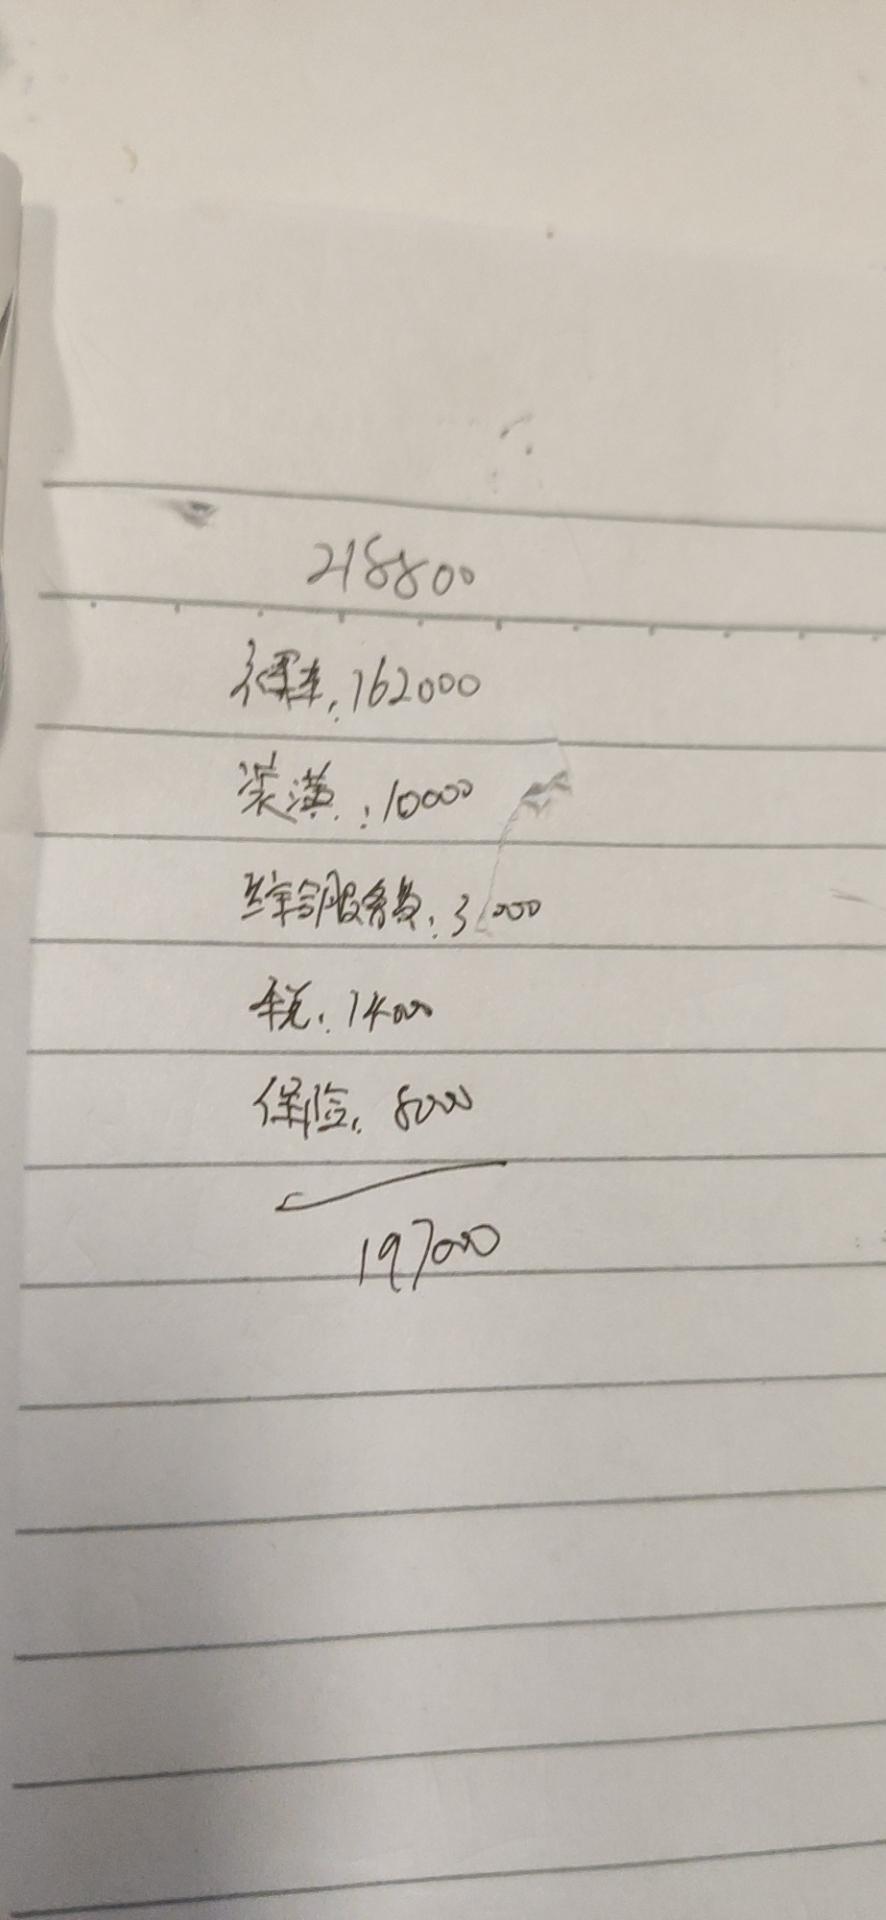 218800
裸车：162000
装潢：10000
综合服务费：3000
车税：14000
保险：8000
197000